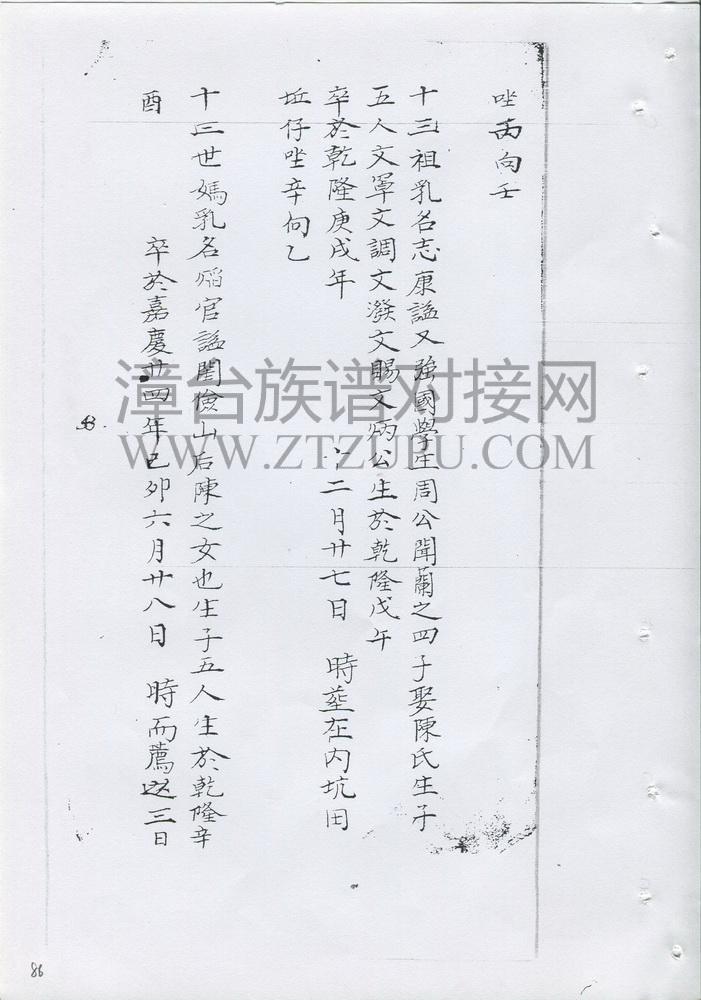 坐丙向壬
十三祖乳名志康謚又強國學生周公聞蘭之四子娶陳氏生子
五人文罩文調文潑文賜文炳公生於乾隆戊午
卒於乾隆庚戌年 二月廿七日 時塟在內坑田
坵仔坐辛向乙
十三世媽乳名 官謚閨儉山后陳之女也生子五人生於乾隆辛
酉 卒於嘉慶廿四年己卯六月廿八日 時而薦 三日
漳台族谱对接网
WWW.ZTZUPU.COM
86